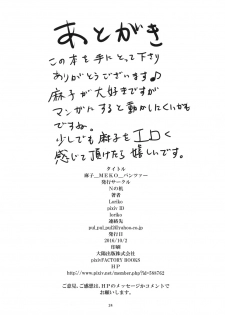 あとがき
この本を手にとって下さり
ありがとうございます♪
麻子が大好きですが
マンガにすると動かしにくいかも
ですね。
少しでも麻子をエロく
感じて頂けたら嬉しいです。
タイトル
麻子__MEKO__パンツァー
発行サークル
Nの机
著者
Loriko
pixiv ID
loriko
連絡先
発行日
2016/10/2
印刷
大陽出版株式会社
pixivFACTORY BOOKS
HP
ご意見、ご感想は、HPのメッセージかコメントで
お願いします。
24